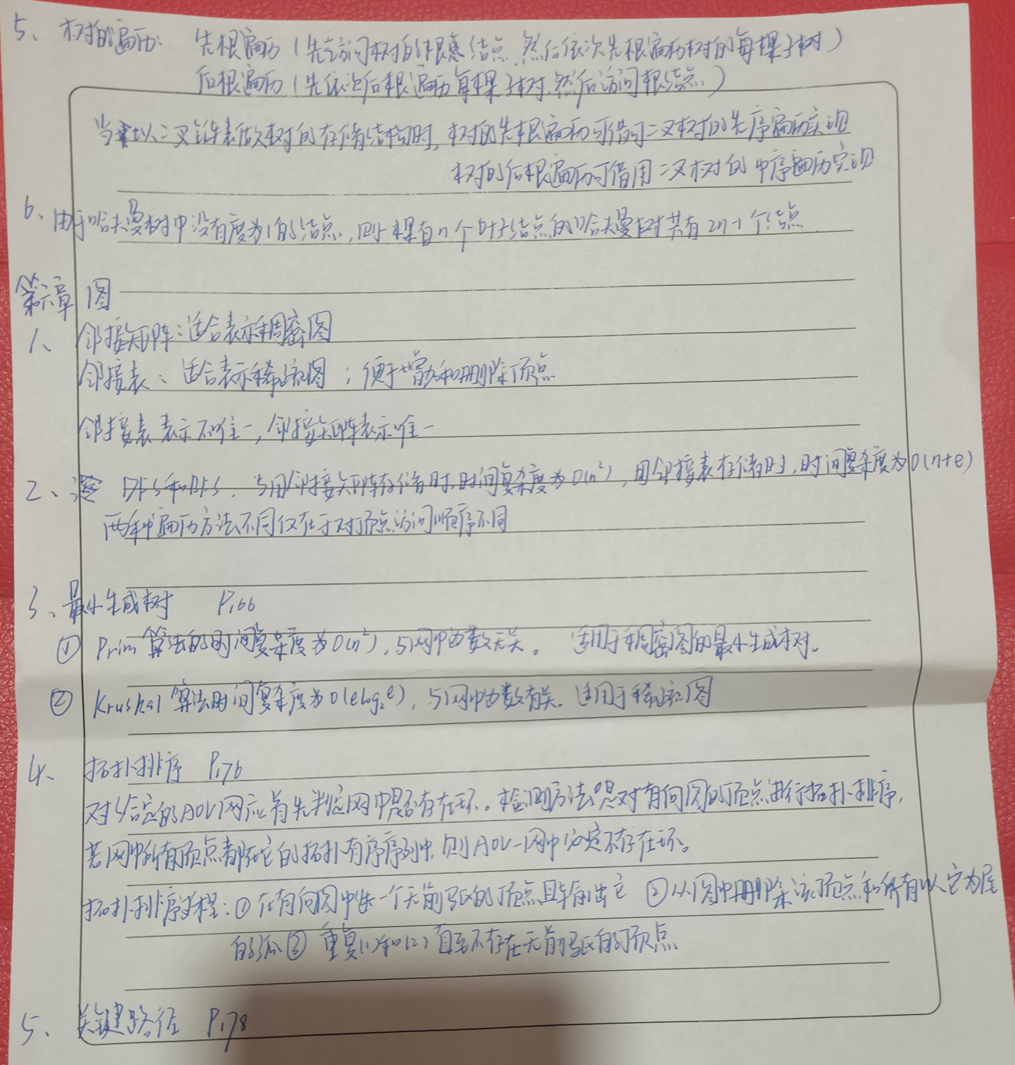 5、树的遍历: 先根遍历(先访问树的根结点,然后依次先根遍历树的每棵子树)
后根遍历(先依次后根遍历每棵子树,然后访问根结点)
当以二叉链表做树的存储结构时,树的先根遍历可借用二叉树的先序遍历实现
树的后根遍历可借用二叉树的中序遍历实现
6、由于哈夫曼树中没有度为1的结点,则一棵有n个叶子结点的哈夫曼树共有2n-1个结点
第六章 图
1、邻接矩阵:适合表示稠密图
邻接表:适合表示稀疏图;便于增加和删除顶点
邻接表表示不唯一,邻接矩阵表示唯一
2、DFS和BFS,当用邻接矩阵存储时,时间复杂度为O(n²),用邻接表存储时,时间复杂度为O(n+e)
两种遍历方法不同仅在于对顶点访问顺序不同
3、最小生成树 P166
① Prim算法的时间复杂度为O(n²),与网中边数无关。适用于稠密图的最小生成树。
② Kruskal算法时间复杂度为O(elog₂e),与网中边数有关。适用于稀疏图
4、拓扑排序 P176
对给定的AOV网应首先判定网中是否存在环。检测方法是对有向图的顶点进行拓扑排序,
若网中所有顶点都在它的拓扑有序序列中,则AOV-网中必定不存在环。
拓扑排序过程:①在有向图中选一个无前驱的顶点且输出它 ②从图中删除该顶点和所有以它为尾
的弧③重复(1)和(2)直至不存在无前驱的顶点
5、关键路径 P178